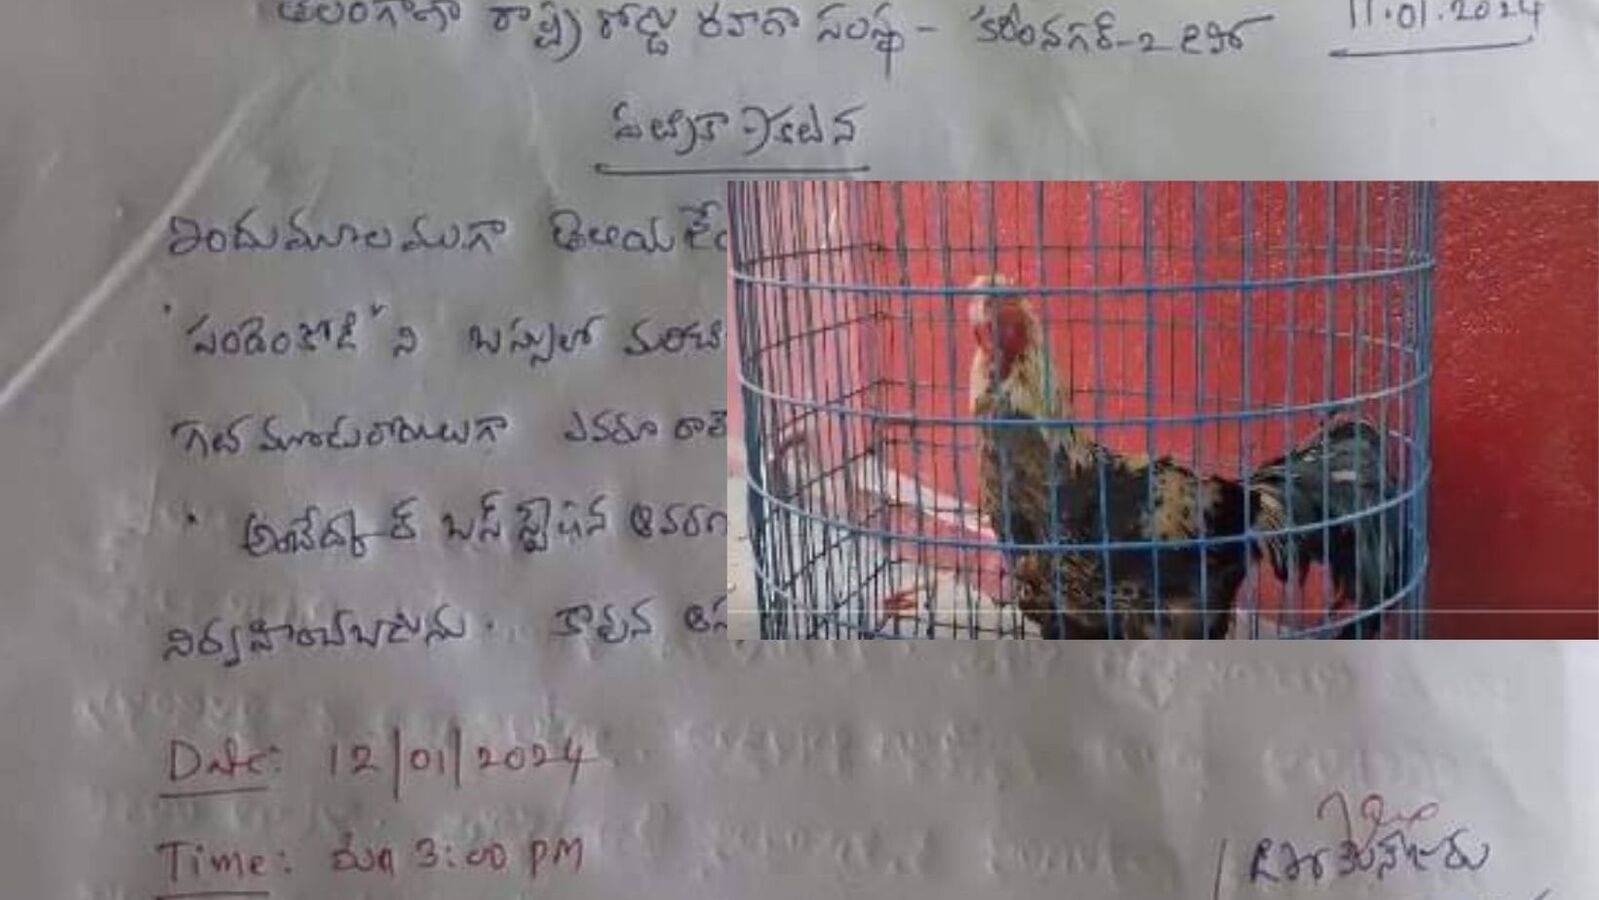 తెలంగాణా రాష్ట్ర రోడ్డు రవాణా సంస్థ - కరీంనగర్-2 డిపో 11.01.2024
పత్రికా ప్రకటన
ఇందుమూలముగా తెలియజే
"పందెంకోడి" ని బస్సులో మరిచి
గత మూడురోజులుగా ఎవరూ రాలే
అంబేద్కర్ బస్ స్టేషన్ ఆవరణ
నిర్వహించబడును. కావున ఆస
Date: 12/01/2024
Time: మ॥ 3:00 PM
డిపో మేనేజరు